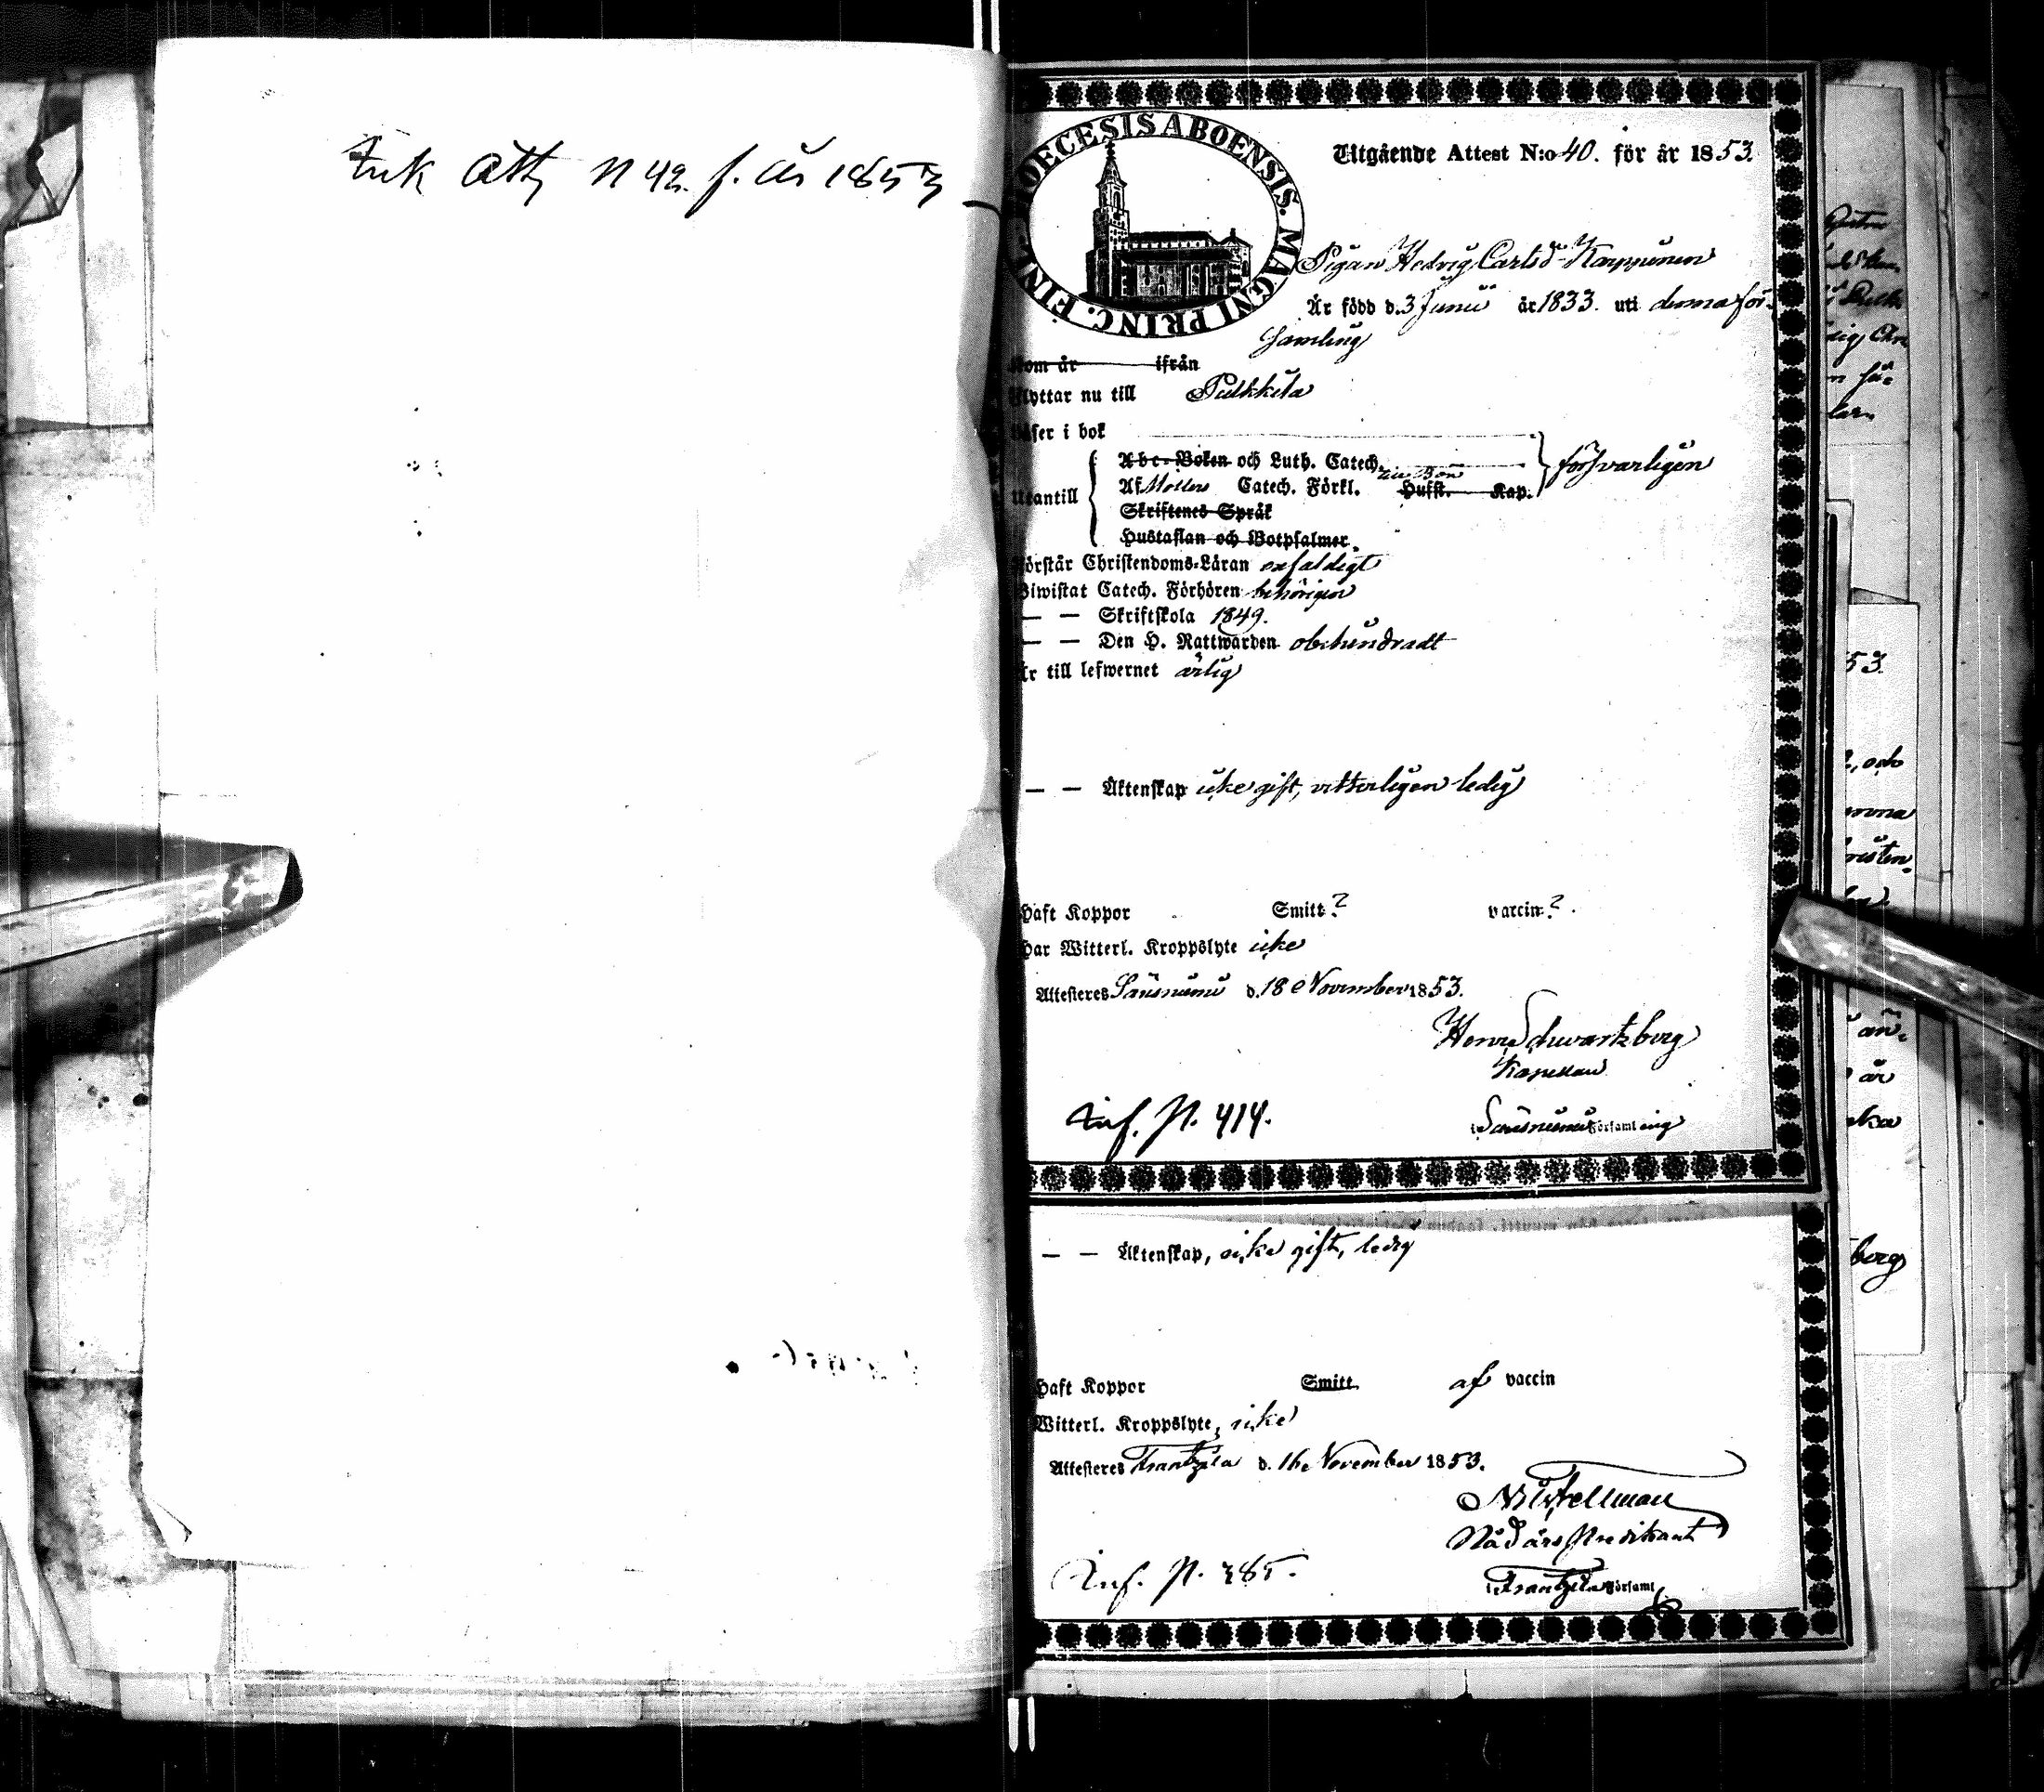 Ink Att. N 42. f. år 1853
DIOECESIS ABOENSIS. MAGNI PRINC. FINL.
Utgående Attest N:o 40. för år 1853.
Pigan Hedvig Carlsd. Karppinen
Är född d. 3 Junii år 1833. uti denna för-
samling
Kom år ifrån
Flyttar nu till Pulkkila
Läser i bok
Abc-Boken och Luth. Catech. försvarligen
Utantill Af Möllers Catech. Förkl. Hufst. Kap.
Skriftenes Språk
Hustaflan och Botpsalmer
Förstår Christendoms-Läran enfaldigt
Biwistat Catech. Förhören behörigen
— — Skriftskola 1849.
— — Den H. Nattwarden obehindradt
Är till lefwernet ärlig
— — Äktenskap icke gift, vitterligen ledig
Haft Koppor Smitt ? vaccin ?.
Har Witterl. Kroppslyte icke
Attesteres Säräisniemi d. 18 November 1853.
Henr. Schwartzberg
Kapellan
Inf. N. 414.
i Säräisniemi Församling
— — Äktenskap, icke gift, ledig
Haft Koppor Smitt af vaccin
Witterl. Kroppslyte, icke
Attesteres Frantzila d. 16 November 1853.
Fellman
Nådårs Predikant
Inf. N. 385.
i Frantzila Församl.
53.
, och
än-
är
berg